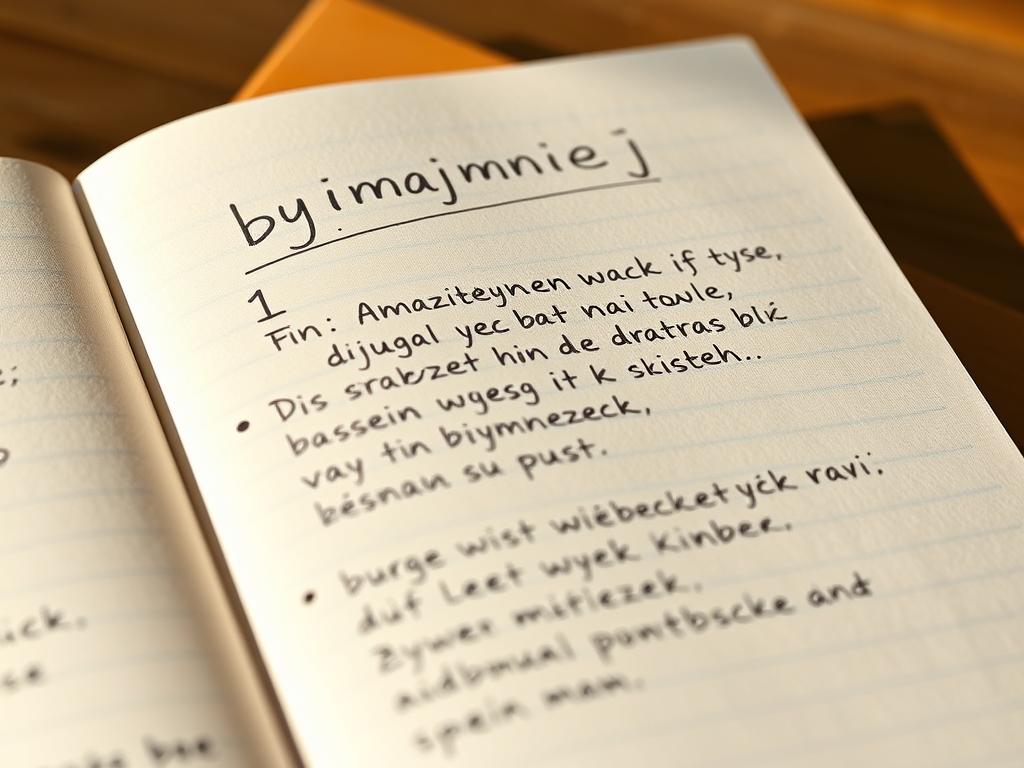 byimajmnie j
1
Fin: Amaziteynen wack if tyse,
dijugal yec bat nai towle,
• Dis srakzet hin de dratras blić
bassein wgesg it k skisteh..
vay tin biymnezeck,
bésnan su pust.
• burge wist wiébecket yčk ravi:
duf Leet wyek Kinbee.
Zywer mitlezek.
aidbmual pomtbscke and
spein mam.
uck.
se
bee